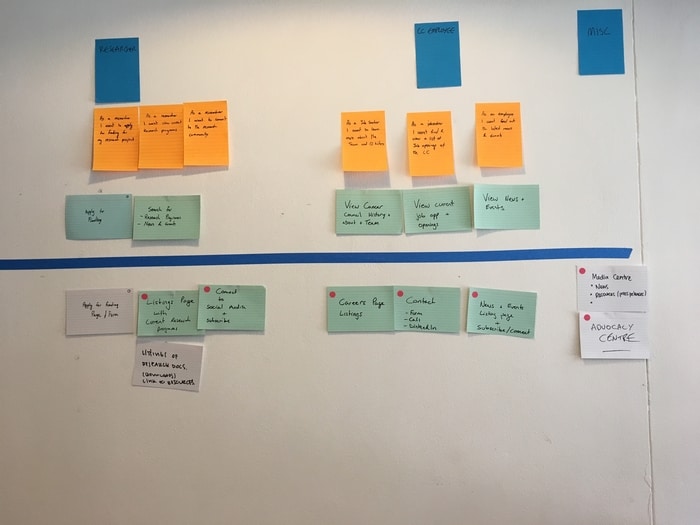 RESEARCHER
CC EMPLOYEE
MISC
As a researcher
I want to apply
for funding for
my research project
As a researcher
I want
research programs
As a researcher
I want to connect
to the research
community
As a Job Seeker
I want to learn
more about the
Team and CC
As a
I want to
view a list of
Job openings at
the CC
As an employee
I want
the latest news &
events
Apply to
Funding
Search for
- Research Programs
- News &
View Cancer
Council History +
about + Team
View current
job app +
openings
View News +
Events
Apply for Funding
Page / Form
Listings Page
with
Current Research
programs
Connect
to
Social Media
+
Subscribe
Careers Page
Listings
Contact
- Form
- Call
- LinkedIn
News + Events
Listing page
+
Subscribe/Connect
Media Centre
• News
• Resources (press releases)
•
ADVOCACY
CENTRE
LISTINGS OF
RESEARCH DOCS.
(DOWNLOADS)
LINK TO RESOURCES